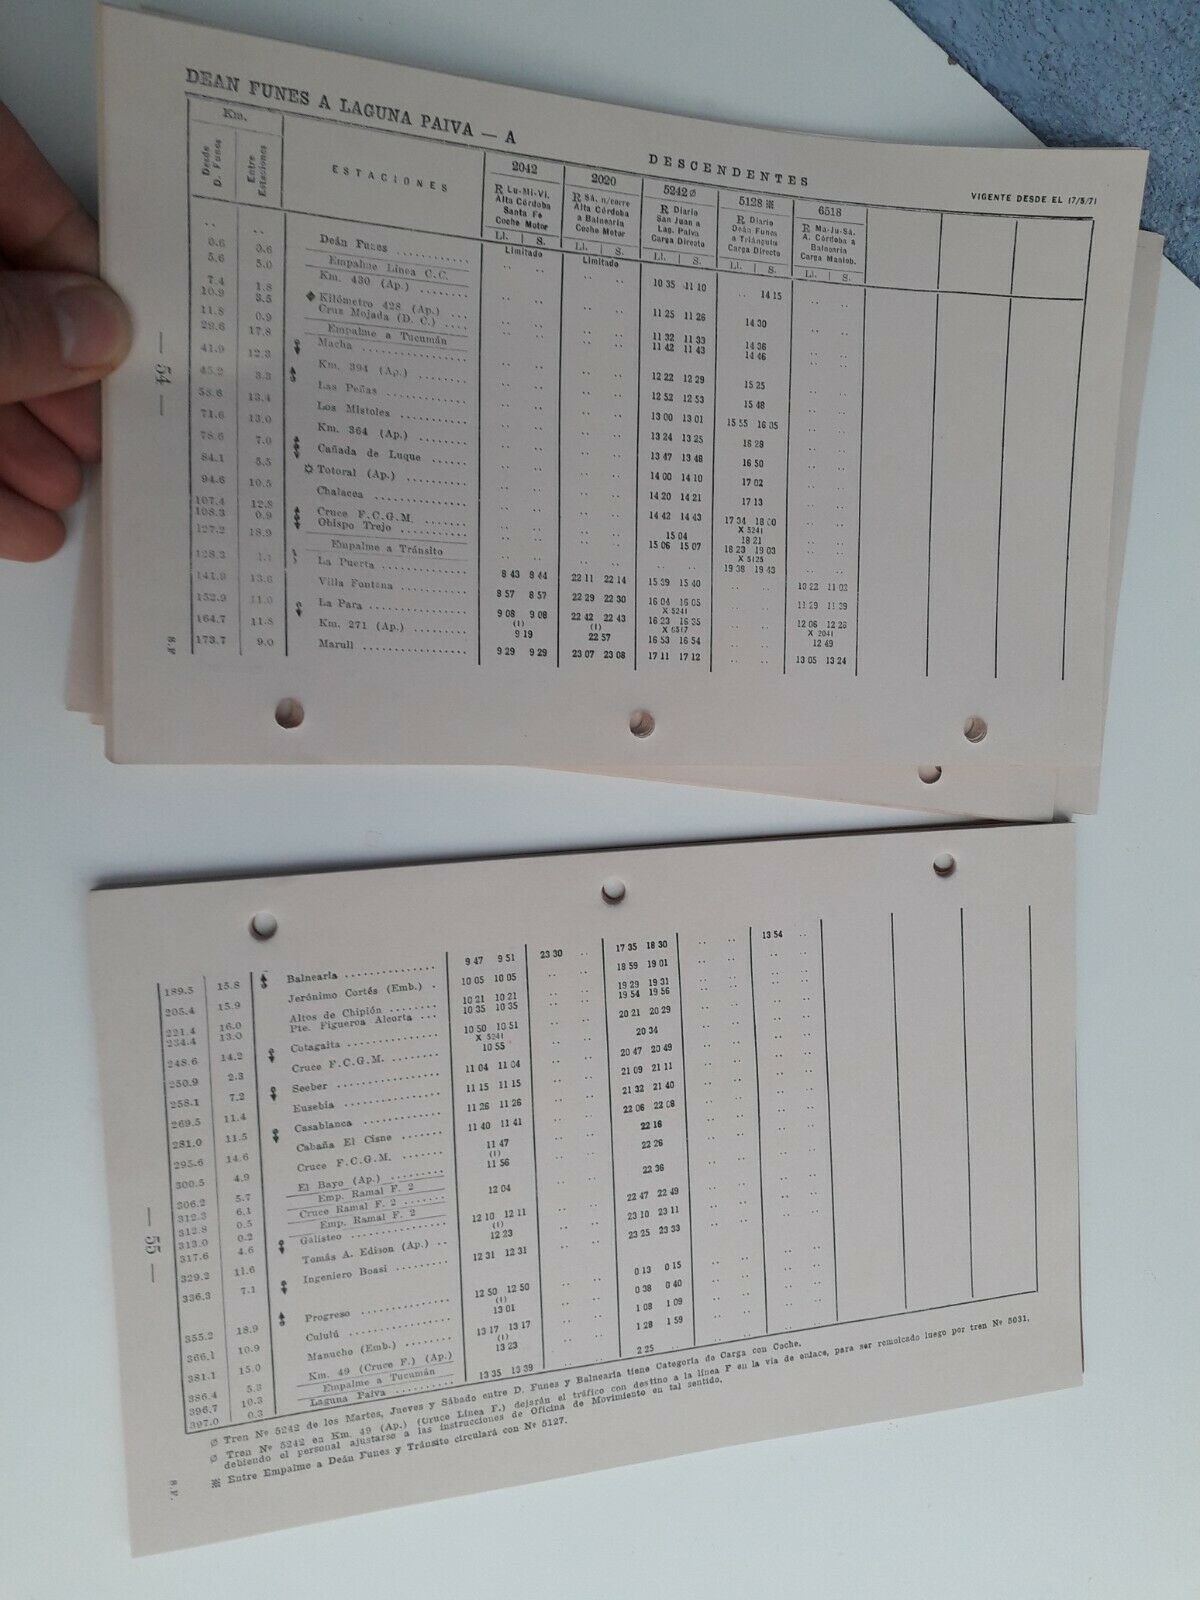 DEAN FUNES A LAGUNA PAIVA — A
DESCENDENTES
VIGENTE DESDE EL 17/5/71
Km.
Desde D. Funes
Entre Estaciones
ESTACIONES
2042
R Lu-Mi-Vi.
Alta Córdoba
Santa Fe
Coche Motor
Ll. S.
Limitado
2020
R Sá. n/corre
Alta Córdoba
a Balnearia
Coche Motor
Ll. S.
Limitado
5242 ∅
R Diario
San Juan a
Lag. Paiva
Carga Directo
Ll. S.
5128 ※
R Diario
Deán Funes
a Triángulo
Carga Directo
Ll. S.
6518
R Ma-Ju-Sá.
A. Córdoba a
Balnearia
Carga Maniob.
Ll. S.
Deán Funes 10 35 11 10 14 15
0.6 0.6 Empalme Línea C.C.
5.6 5.0 Km. 430 (Ap.) 11 25 11 26 14 30
7.4 1.8 Kilómetro 428 (Ap.) 11 32 11 33 14 36
10.9 3.5 Cruz Mojada (D. C.) 11 42 11 43 14 46
11.8 0.9 Empalme a Tucumán
29.6 17.8 Macha 12 22 12 29 15 25
41.9 12.3 Km. 394 (Ap.) 12 52 12 53 15 48
45.2 3.3 Las Peñas 13 00 13 01 15 55 16 05
58.6 13.4 Los Mistoles 13 24 13 25 16 28
71.6 13.0 Km. 364 (Ap.) 13 47 13 48 16 50
78.6 7.0 Cañada de Luque 14 00 14 10 17 02
84.1 5.5 Totoral (Ap.) 14 20 14 21 17 13
94.6 10.5 Chalacea 14 42 14 43 17 34 18 00
X 5241
107.4 12.8 Cruce F.C.G.M. 15 04 18 21
108.3 0.9 Obispo Trejo 15 06 15 07 18 23 19 03
X 5125
127.2 18.9 Empalme a Tránsito 19 38 19 43
128.3 1.1 La Puerta 8 43 8 44 22 11 22 14 15 39 15 40 10 22 11 02
141.9 13.6 Villa Fontana 8 57 8 57 22 29 22 30 16 04 16 05 11 29 11 39
X 5241
152.9 11.0 La Para 9 08 9 08 22 42 22 43 16 23 16 35 12 06 12 26
(1) (1) X 6517 X 2041
164.7 11.8 Km. 271 (Ap.) 9 19 22 57 16 53 16 54 12 49
173.7 9.0 Marull 9 29 9 29 23 07 23 08 17 11 17 12 13 05 13 24
— 54 —
S.F.
189.5 15.8 Balnearia 9 47 9 51 23 30 17 35 18 30 13 54
205.4 15.9 Jerónimo Cortés (Emb.) 10 05 10 05 18 59 19 01
221.4 16.0 Altos de Chipión 10 21 10 21 19 29 19 31
234.4 13.0 Pte. Figueroa Alcorta 10 35 10 35 19 54 19 56
248.6 14.2 Cotagaita 10 50 10 51 20 21 20 29
X 5241
250.9 2.3 Cruce F.C.G.M. 10 55 20 34
258.1 7.2 Seeber 11 04 11 04 20 47 20 49
269.5 11.4 Eusebia 11 15 11 15 21 09 21 11
281.0 11.5 Casablanca 11 26 11 26 21 32 21 40
295.6 14.6 Cabaña El Cisne 11 40 11 41 22 06 22 08
300.5 4.9 Cruce F.C.G.M. 11 47 22 16
(1)
306.2 5.7 El Bayo (Ap.) 11 56 22 26
312.3 6.1 Emp. Ramal F. 2
312.8 0.5 Cruce Ramal F. 2 12 04 22 36
313.0 0.2 Emp. Ramal F. 2
317.6 4.6 Galisteo 12 10 12 11 22 47 22 49
(1)
329.2 11.6 Tomás A. Edison (Ap.) 12 23 23 10 23 11
336.3 7.1 Ingeniero Boasi 12 31 12 31 23 25 23 33
355.2 18.9 Progreso 12 50 12 50 0 13 0 15
(1)
366.1 10.9 Cululú 13 01 0 38 0 40
381.1 15.0 Manucho (Emb.) 13 17 13 17 1 08 1 09
(1)
386.4 5.3 Km. 49 (Cruce F.) (Ap.) 13 23 1 28 1 59
396.7 10.3 Empalme a Tucumán
397.0 0.3 Laguna Paiva 13 35 13 39 2 25
— 55 —
∅ Tren Nº 5242 de los Martes, Jueves y Sábado entre D. Funes y Balnearia tiene Categoría de Carga con Coche.
∅ Tren Nº 5242 en Km. 49 (Ap.) (Cruce Línea F.) dejarán el tráfico con destino a la línea F en la vía de enlace, para ser remolcado luego por tren Nº 5031,
debiendo el personal ajustarse a las instrucciones de Oficina de Movimiento en tal sentido.
※ Entre Empalme a Deán Funes y Tránsito circulará con Nº 5127.
S.F.